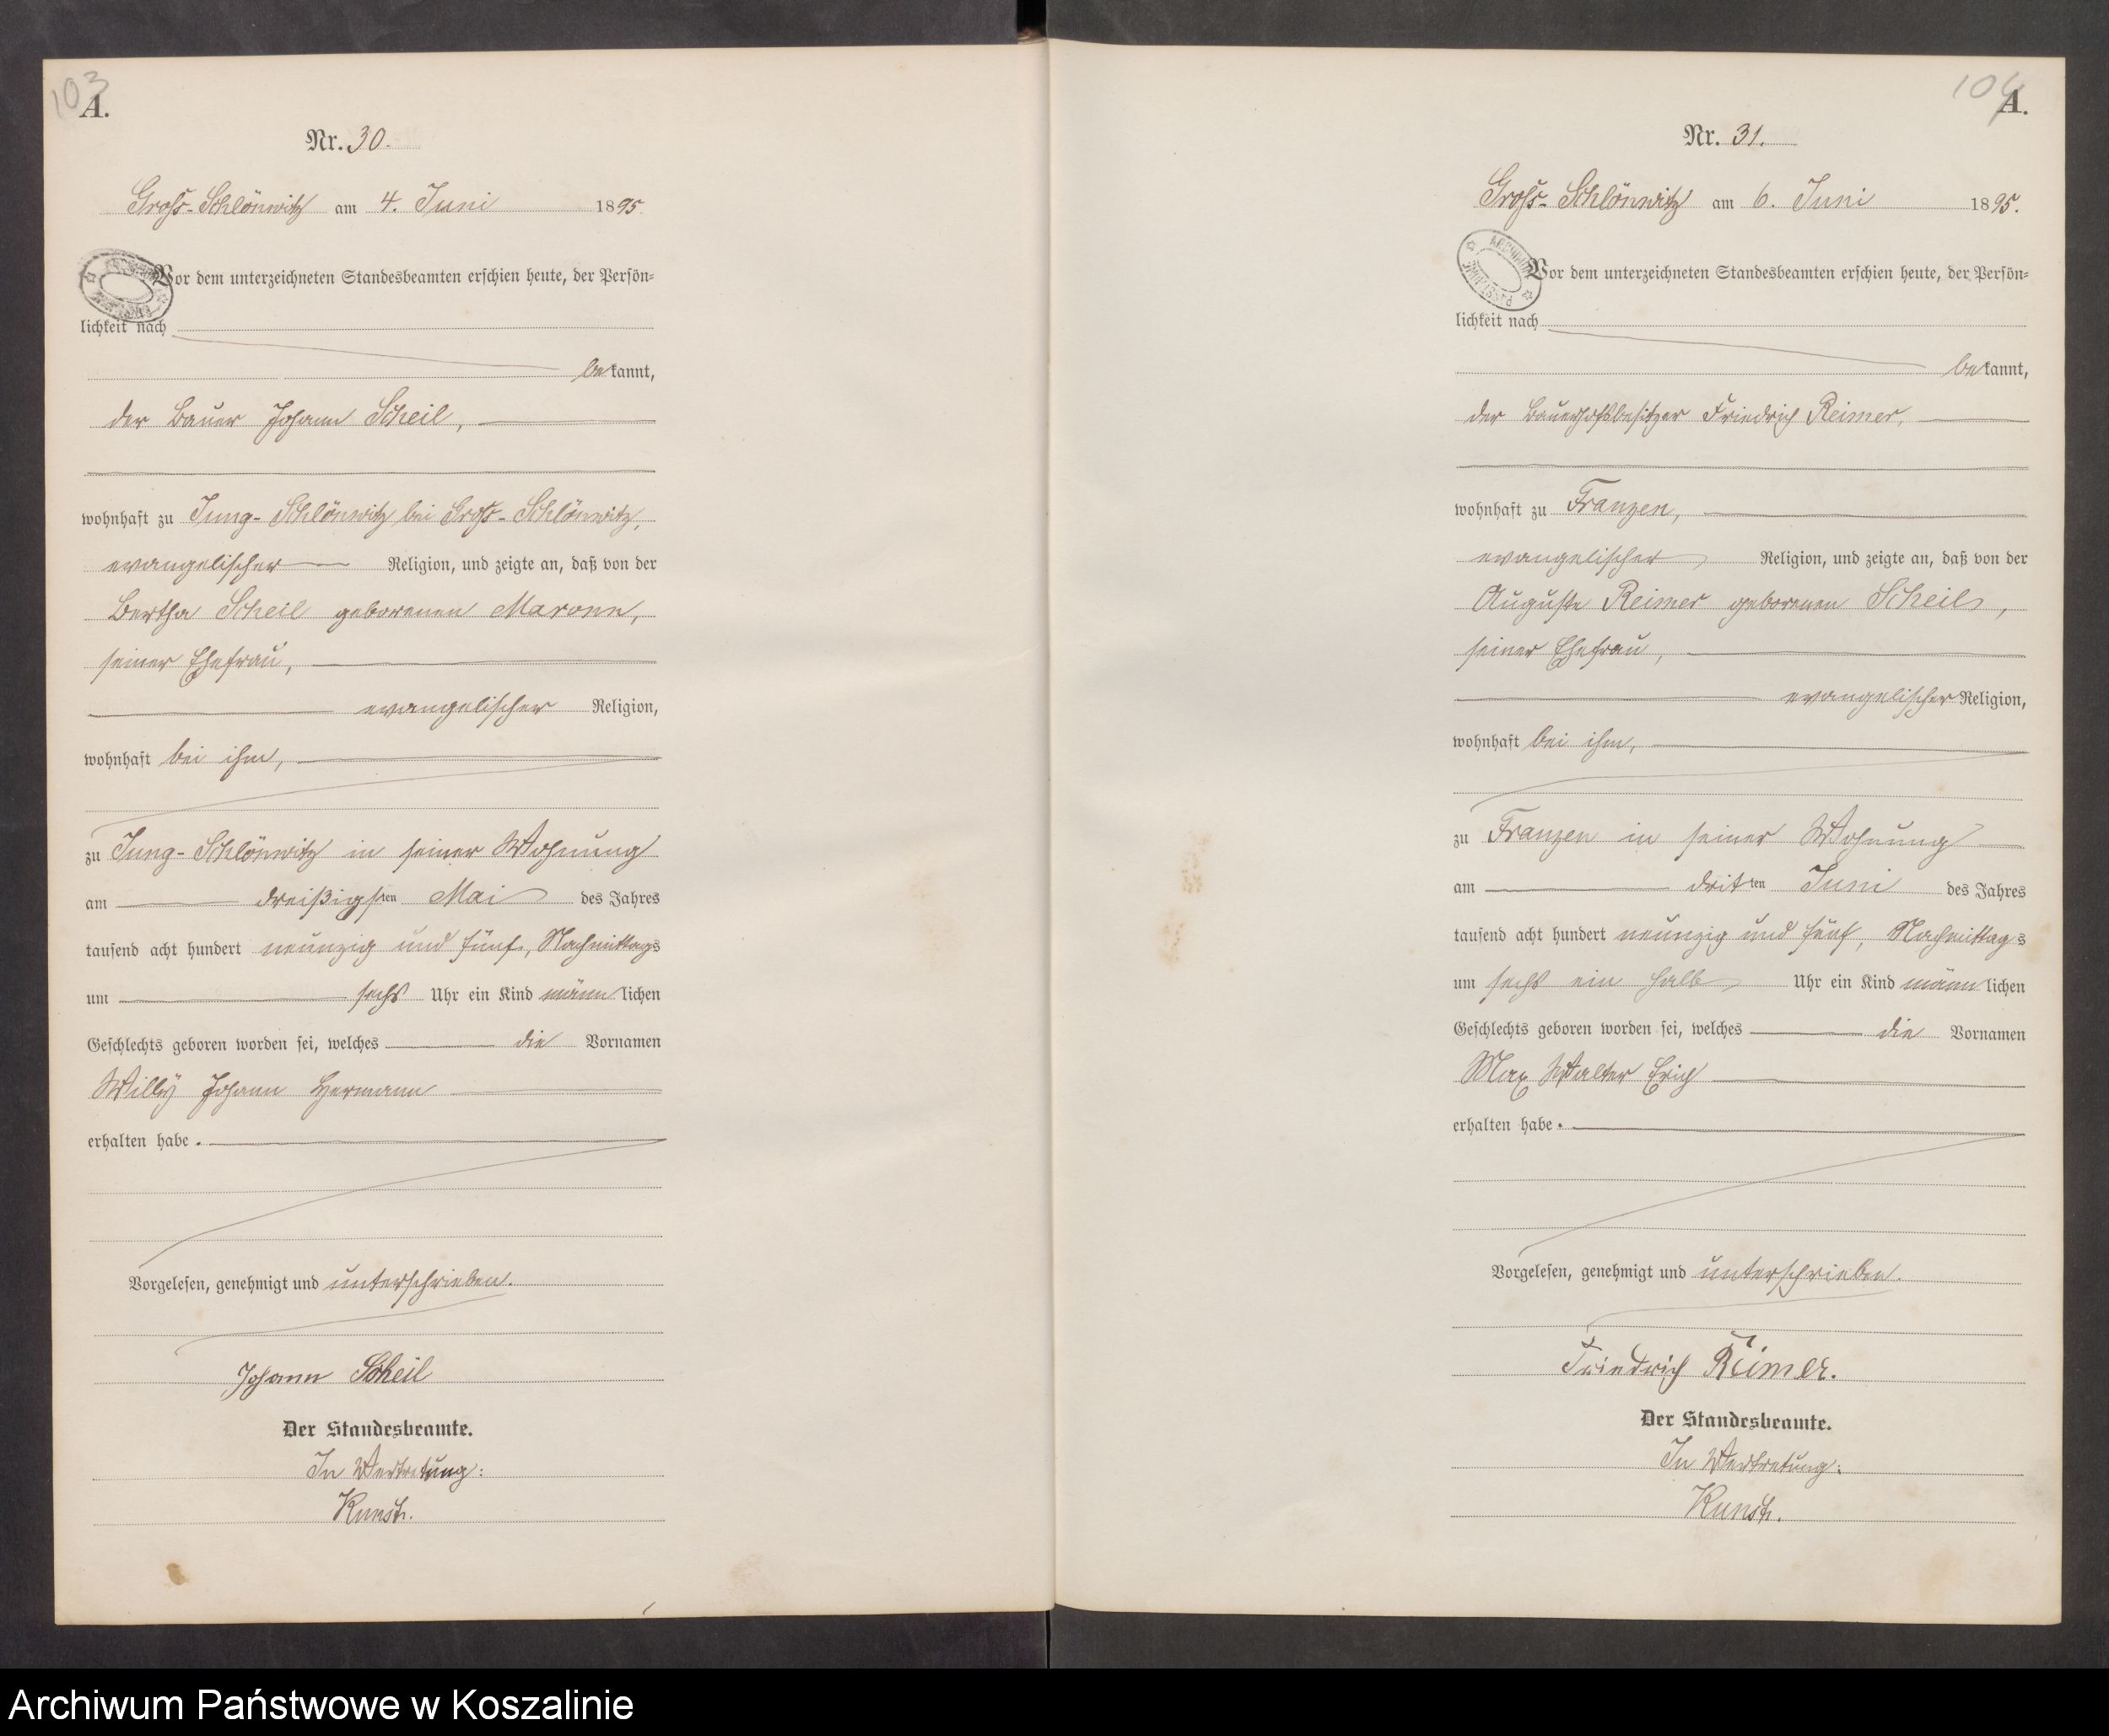 103
A.
Nr. 30.
Gross-Schlönwitz am 4. Juni 1895.
Vor dem unterzeichneten Standesbeamten erschien heute, der Persön=
lichkeit nach
bekannt,
der Bauer Johann Scheil,
wohnhaft zu Jung-Schlönwitz bei Gross-Schlönwitz,
evangelischer Religion, und zeigte an, daß von der
Bertha Scheil geborenen Maronn,
seiner Ehefrau,
evangelischer Religion,
wohnhaft bei ihm,
zu Jung-Schlönwitz in seiner Wohnung
am dreißigsten Mai des Jahres
tausend acht hundert neunzig und fünf, Nachmittags
um sechs Uhr ein Kind männlichen
Geschlechts geboren worden sei, welches die Vornamen
Willy Johann Hermann
erhalten habe.
Vorgelesen, genehmigt und unterschrieben.
Johann Scheil
Der Standesbeamte.
In Vertretung:
104
A.
Nr. 31.
Gross-Schlönwitz am 6. Juni 1895.
Vor dem unterzeichneten Standesbeamten erschien heute, der Persön=
lichkeit nach
bekannt,
der Bauerhofsbesitzer Friedrich Reimer,
wohnhaft zu Franzen,
evangelischer Religion, und zeigte an, daß von der
Auguste Reimer geborenen Scheil,
seiner Ehefrau,
evangelischer Religion,
wohnhaft bei ihm,
zu Franzen in seiner Wohnung
am dritten Juni des Jahres
tausend acht hundert neunzig und fünf, Nachmittags
um sechs ein halb Uhr ein Kind männlichen
Geschlechts geboren worden sei, welches die Vornamen
Max Walter Erich
erhalten habe.
Vorgelesen, genehmigt und unterschrieben.
Friedrich Reimer.
Der Standesbeamte.
In Vertretung:
Archiwum Państwowe w Koszalinie